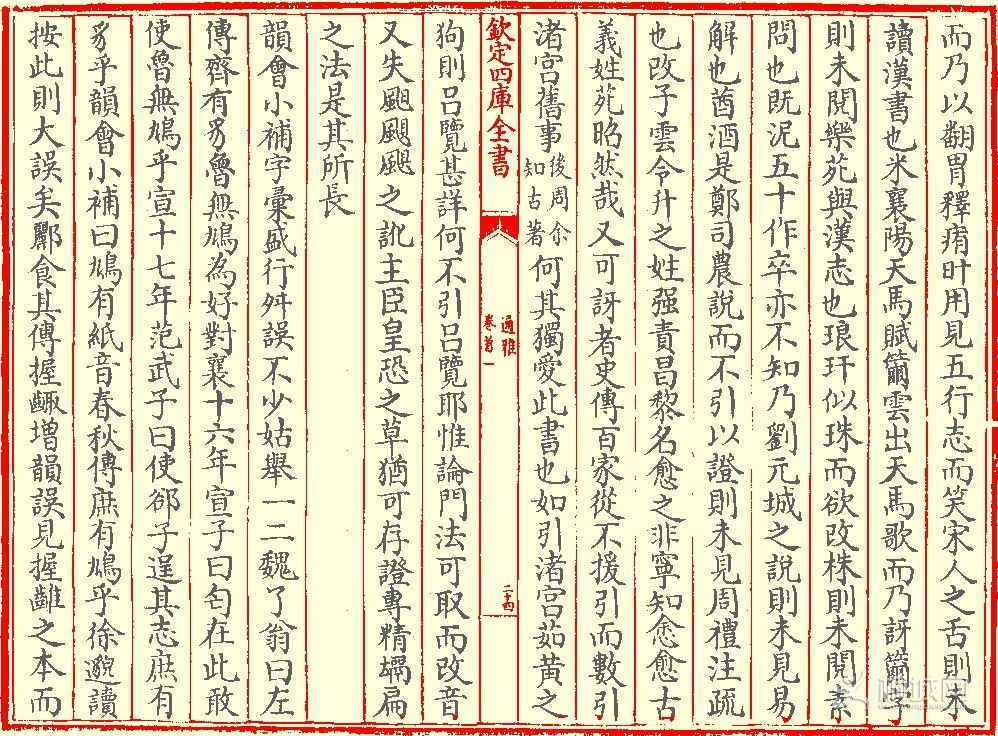 而乃以翻胃釋痟叶用見五行志而笑宋人之舌則未
讀漢書也米襄陽天馬賦籋雲出天馬歌而乃訝籋字
則未閱樂苑與漢志也琅玕似珠而欲改株則未閱素
問也既泥五十作卒亦不知乃劉元城之說則未見易
解也酋酒是鄭司農說而不引以證則未見周禮注疏
也改子雲令升之姓强責昌黎名愈之非寧知愈愈古
義姓苑昭然哉又可訝者史傳百家從不援引而數引
渚宮舊事後周余知古著何其獨愛此書也如引渚宮茹黃之
欽定四庫全書
通雅
卷首一
二十四
狗則呂覽甚詳何不引呂覽耶惟論門法可取而改音
又失䬃颶颸之訛主臣皇恐之草猶可存證專精堨扁
之法是其所長
韻會小補字彙盛行舛誤不少姑舉一二魏了翁曰左
傳齊有豸魯無鳩為好對襄十六年宣子曰匄在此敢
使魯無鳩乎宣十七年范武子曰使郤子逞其志庶有
豸乎韻會小補曰鳩有紙音春秋傳庶有鳩乎徐邈讀
按此則大誤矣酈食其傳握齱增韻誤見握齱之本而